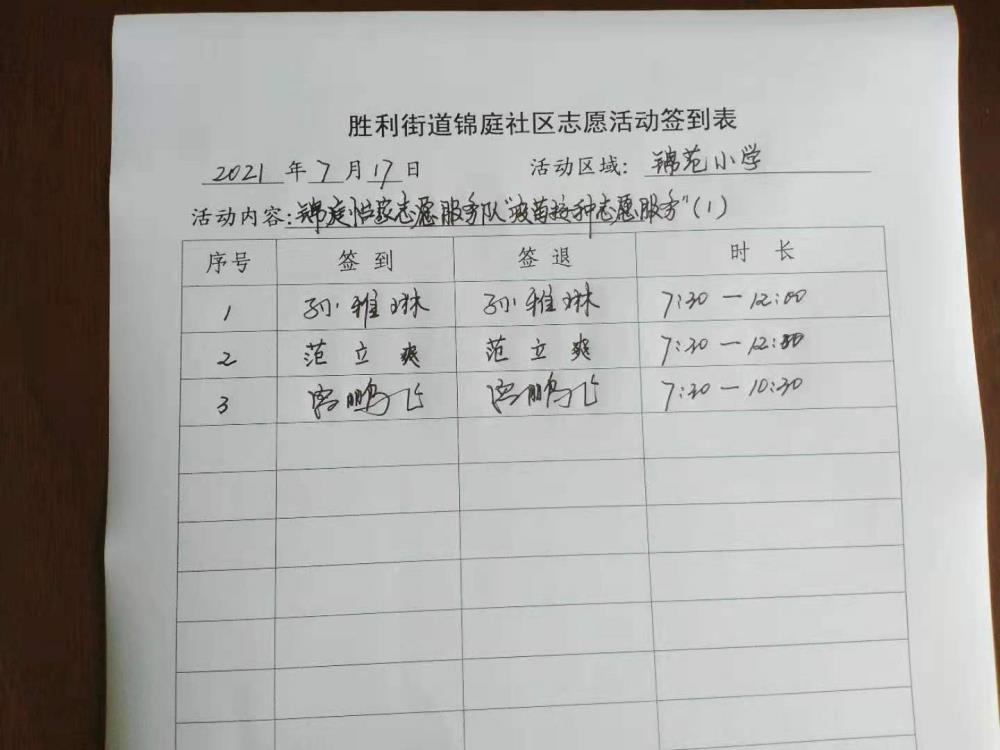 胜利街道锦庭社区志愿活动签到表
2021 年 7 月 17 日 活动区域: 锦苑小学
活动内容: 锦庭怡家志愿服务队"疫苗接种志愿服务"(1)
序号 签到 签退 时长
1 孙雅琳 孙雅琳 7:30 — 12:00
2 范立爽 范立爽 7:30 — 12:
3 鹏飞 鹏飞 7:30 — 10:30